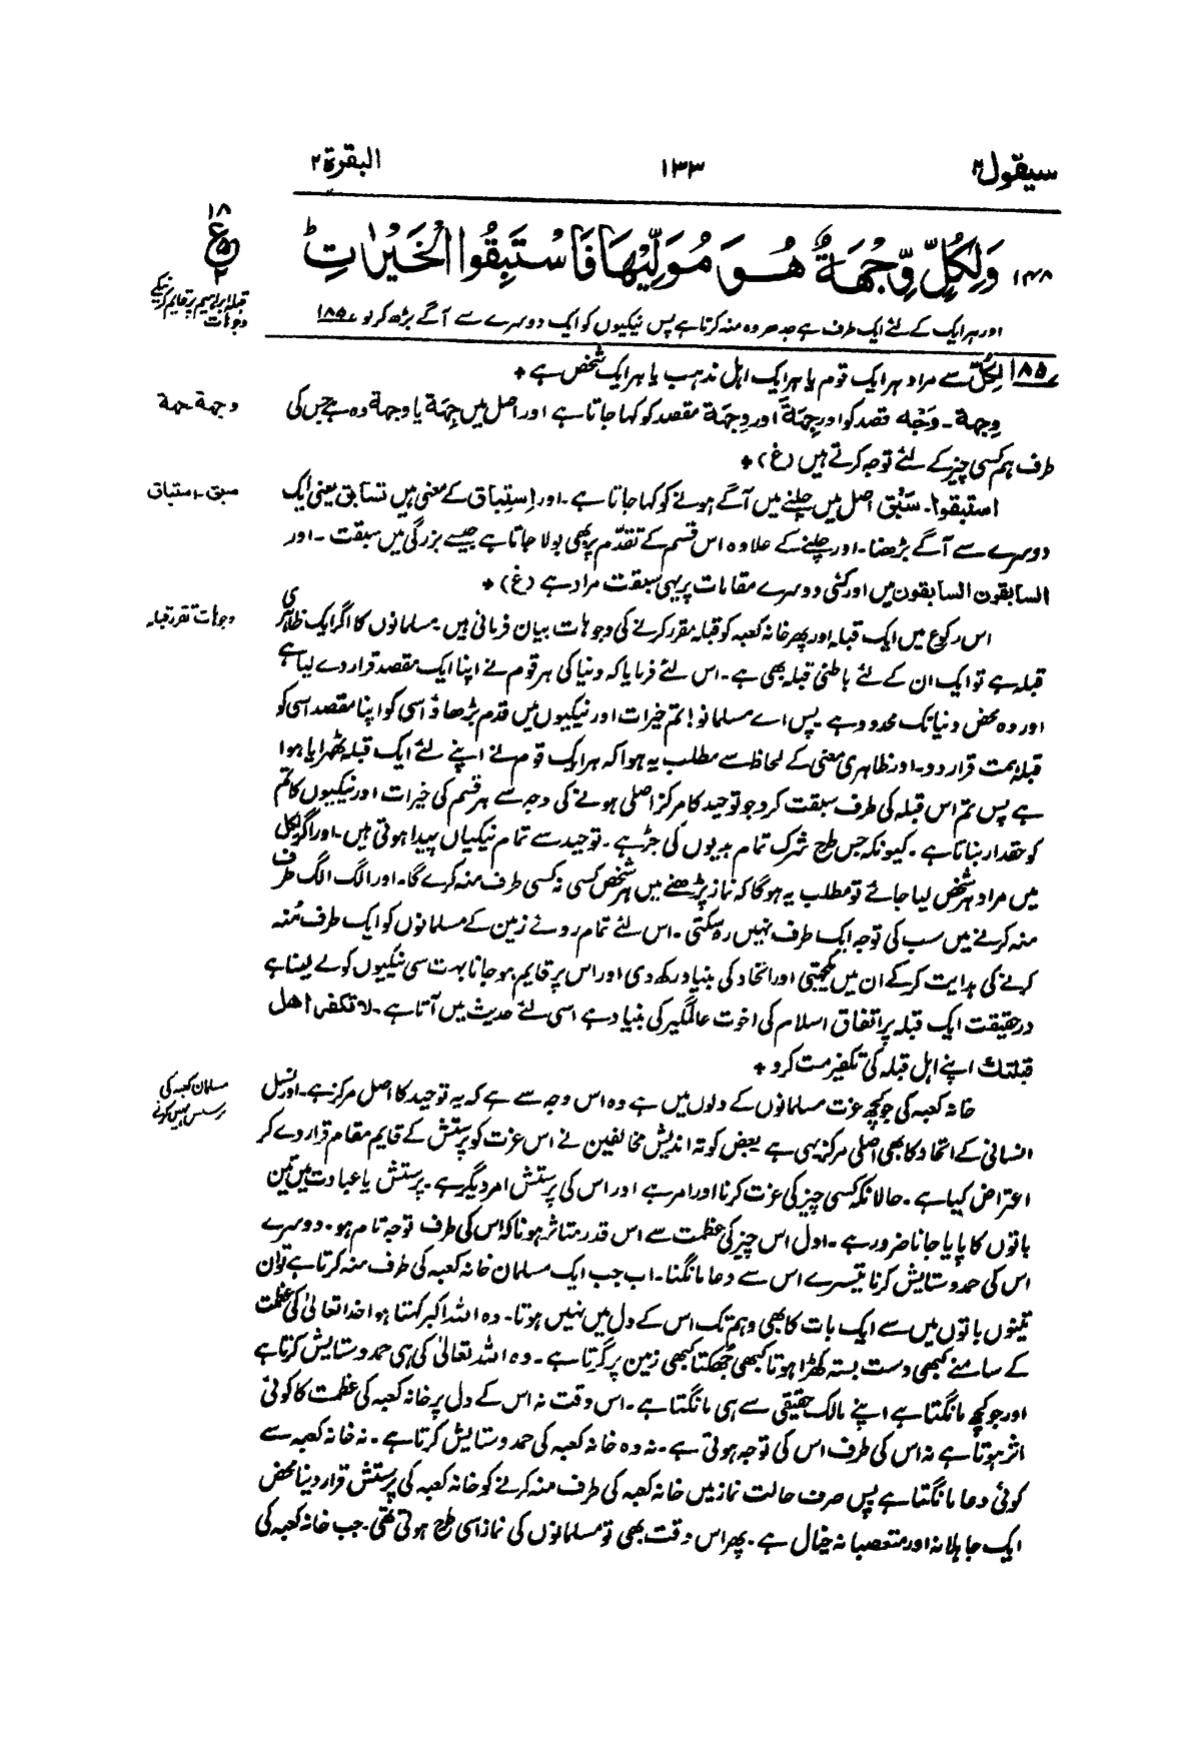 سیقول ۲
۱۳۳
البقرۃ ۲
۱۴۸ وَلِكُلٍّ وِّجْهَةٌ هُوَ مُوَلِّيْهَا فَاسْتَبِقُوا الْخَيْرٰتِ ؕ
۱۸
ع
۲
قبلہ ابراہیم پر قایم کرنیکے
وجوہات
اور ہر ایک کے لئے ایک طرف ہے جدھر وہ منہ کرتا ہے پس نیکیوں کو ایک دوسرے سے آگے بڑھ کر لو ۱۸۵
۱۸۵ لِکُلٍّ سے مراد ہر ایک قوم یا ہر ایک اہل مذہب یا ہر ایک شخص ہے +
وجھۃ۔ وَجْه قصد کو اور جِهَة اور وِجهَة مقصد کو کہا جاتا ہے اور اصل میں جِهَة یا وجهة وہ ہے جس کی
وجھۃ جھۃ
طرف ہم کسی چیز کے لئے توجہ کرتے ہیں (غ) +
استبقوا۔ سَبْق اصل میں چلنے میں آگے ہونے کو کہا جاتا ہے۔ اور اِستِباق کے معنی ہیں تسابق یعنی ایک
سبق۔ استباق
دوسرے سے آگے بڑھنا۔ اور چلنے کے علاوہ اس قسم کے تقدّم پر بھی بولا جاتا ہے جیسے بزرگی میں سبقت۔ اور
السابقون السابقون میں اور کئی دوسرے مقامات پر یہی سبقت مراد ہے (غ) +
اس رکوع میں ایک قبلہ اور پھر خانہ کعبہ کو قبلہ مقرر کرنے کی وجوہات بیان فرمائی ہیں۔ مسلمانوں کا اگر ایک ظاہری
وجوہات تقرر قبلہ
قبلہ ہے تو ایک ان کے لئے باطنی قبلہ بھی ہے۔ اس لئے فرمایا کہ دنیا کی ہر قوم نے اپنا ایک مقصد قرار دے لیا ہے
اور وہ محض دنیا تک محدود ہے۔ پس اے مسلمانو! تم خیرات اور نیکیوں میں قدم بڑھاؤ اسی کو اپنا مقصد اسی کو
قبلہ ہمت قرار دو۔ اور ظاہری معنی کے لحاظ سے مطلب یہ ہوا کہ ہر ایک قوم نے اپنے لئے ایک قبلہ ٹھرایا ہوا
ہے پس تم اس قبلہ کی طرف سبقت کرو جو توحید کا مرکز اصلی ہونے کی وجہ سے ہر قسم کی خیرات اور نیکیوں کا تم
کو حقدار بناتا ہے۔ کیونکہ جس طرح شرک تمام بدیوں کی جڑ ہے۔ توحید سے تمام نیکیاں پیدا ہوتی ہیں۔ اور اگر لِکُل
میں مراد ہر شخص لیا جائے تو مطلب یہ ہوگا کہ نماز پڑھنے میں ہر شخص کسی نہ کسی طرف منہ کرے گا۔ اور الگ الگ طرف
منہ کرنے میں سب کی توجہ ایک طرف نہیں رہ سکتی۔ اس لئے تمام روئے زمین کے مسلمانوں کو ایک طرف مُنہ
کرنے کی ہدایت کر کے ان میں یکجہتی اور اتحاد کی بنیاد رکھ دی اور اس پر قایم ہو جانا بہت سی نیکیوں کو لے لینا ہے
درحقیقت ایک قبلہ پر اتفاق اسلام کی اخوت عالمگیر کی بنیاد ہے اسی لئے حدیث میں آتا ہے۔ لا تکفر اھل
قبلتك اپنے اہل قبلہ کی تکفیر مت کرو +
خانہ کعبہ کی جو کچھ عزت مسلمانوں کے دلوں میں ہے وہ اس وجہ سے ہے کہ یہ توحید کا اصل مرکز ہے۔ اور نسل
مسلمان کعبہ کی
پرستش نہیں کرتے
انسانی کے اتحاد کا بھی اصلی مرکز یہی ہے بعض کوتہ اندیش مخالفین نے اس عزت کو پرستش کے قایم مقام قرار دے کر
اعتراض کیا ہے۔ حالانکہ کسی چیز کی عزت کرنا اور امر ہے اور اس کی پرستش امر دیگر ہے۔ پرستش یا عبادت میں تین
باتوں کا پایا جانا ضرور ہے۔ اول اس چیز کی عظمت سے اس قدر متاثر ہونا کہ اس کی طرف توجہ تام ہو۔ دوسرے
اس کی حمد و ستایش کرنا تیسرے اس سے دعا مانگنا۔ اب جب ایک مسلمان خانہ کعبہ کی طرف منہ کرتا ہے تو ان
تینوں باتوں میں سے ایک بات کا بھی وہم تک اس کے دل میں نہیں ہوتا۔ وہ اللہ اکبر کہتا ہوا خدا تعالیٰ کی عظمت
کے سامنے کبھی دست بستہ کھڑا ہوتا کبھی جُھکتا کبھی زمین پر گرتا ہے۔ وہ اللہ تعالیٰ کی ہی حمد و ستایش کرتا ہے
اور جو کچھ مانگتا ہے اپنے مالک حقیقی سے ہی مانگتا ہے۔ اس وقت نہ اس کے دل پر خانہ کعبہ کی عظمت کا کوئی
اثر ہوتا ہے نہ اس کی طرف اس کی توجہ ہوتی ہے۔ نہ وہ خانہ کعبہ کی حمد و ستایش کرتا ہے۔ نہ خانہ کعبہ سے
کوئی دعا مانگتا ہے پس صرف حالت نماز میں خانہ کعبہ کی طرف منہ کرنے کو خانہ کعبہ کی پرستش قرار دینا محض
ایک جاہلانہ اور متعصبانہ خیال ہے۔ پھر اس وقت بھی تو مسلمانوں کی نماز اسی طرح ہوتی تھی۔ جب خانہ کعبہ کی